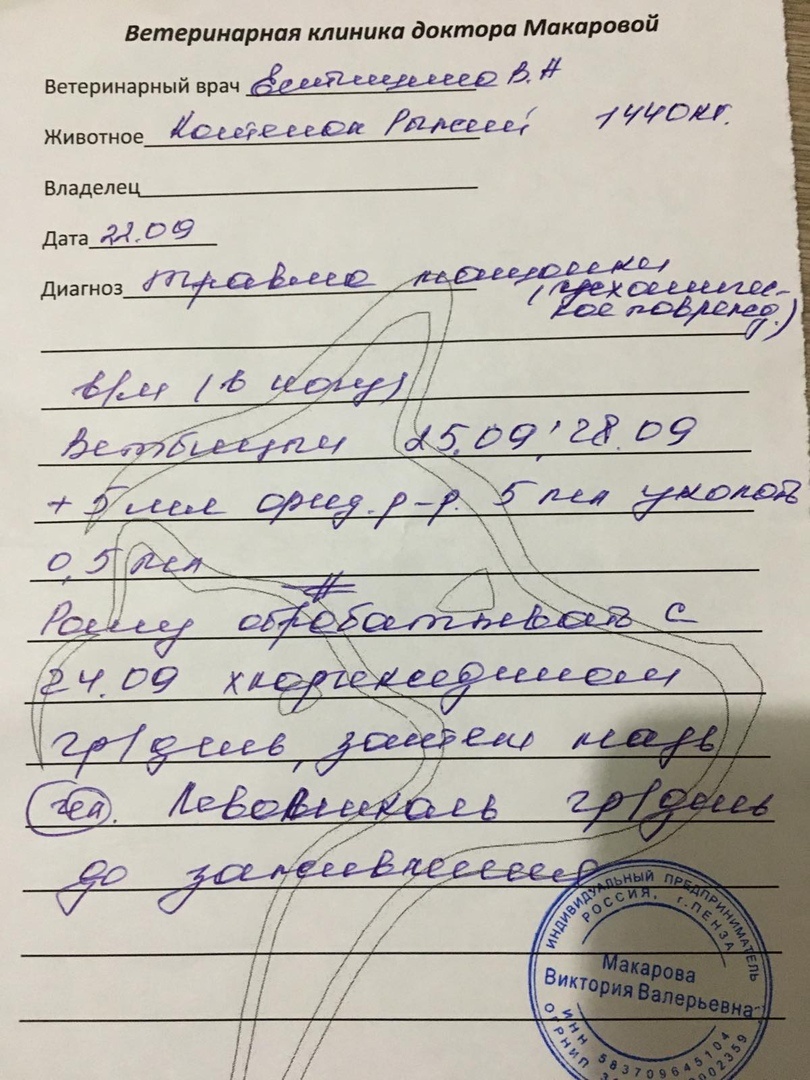 Ветеринарная клиника доктора Макаровой
Ветеринарный врач В.А
Животное Котенок Рыжий 1440кг.
Владелец
Дата 22.09
Диагноз травма мошонки
(механичес-
кое поврежд.)
в/м (в ногу)
Ветбицин 25.09, 28.09
+ 5 мл физ. р-р. 5 мл уколоть
0,5 мл
Рану обрабатывать с
24.09 хлоргексидином
2р/день, затем мазь
гел. Левовинизоль 2р/день
до заживления
ИНДИВИДУАЛЬНЫЙ ПРЕДПРИНИМАТЕЛЬ
РОССИЯ, г.ПЕНЗА
Макарова
Виктория Валерьевна
ИНН 583709645104
ОГРНИП